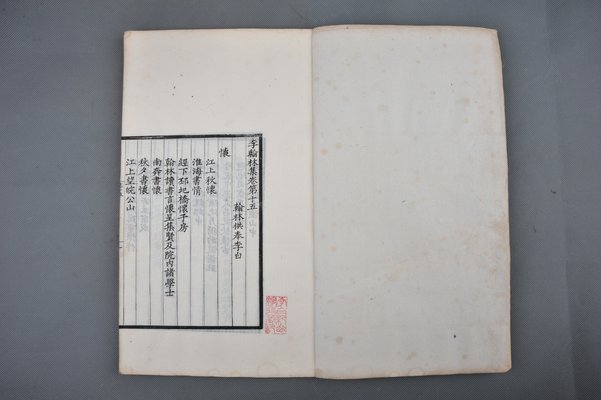 李翰林集卷第十五
翰林供奉李白
懷
江上秋懷
淮海書情
經下邳圯橋懷子房
翰林讀書言懷呈集賢及院內諸學士
南奔書懷
秋夕書懷
江上望皖公山